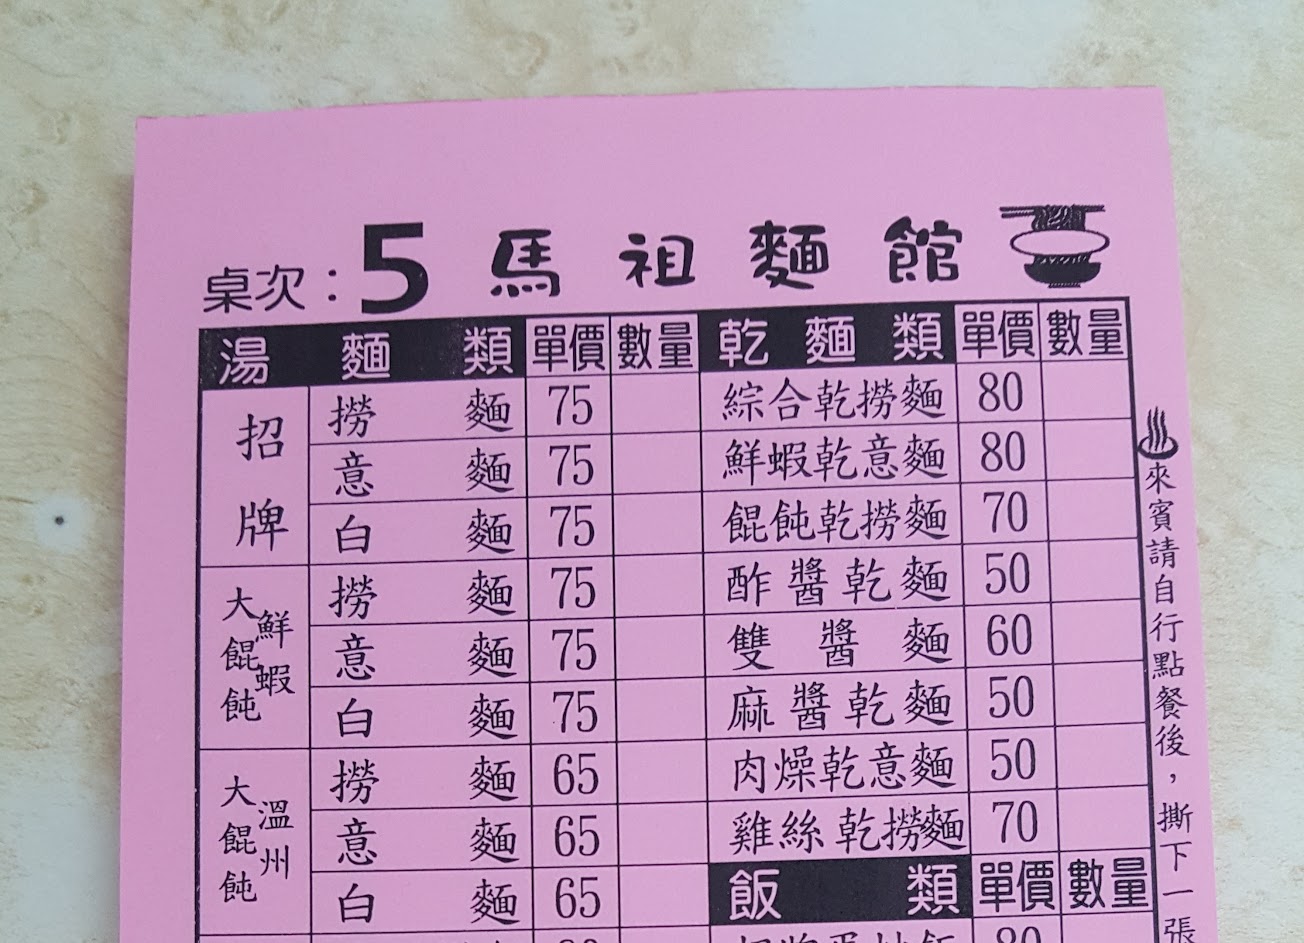 桌次：5 馬祖麵館
湯麵類 單價 數量 乾麵類 單價 數量
招牌 撈麵 75 綜合乾撈麵 80
意麵 75 鮮蝦乾意麵 80
白麵 75 餛飩乾撈麵 70
鮮蝦大餛飩 撈麵 75 酢醬乾麵 50
意麵 75 雙醬麵 60
白麵 75 麻醬乾麵 50
溫州大餛飩 撈麵 65 肉燥乾意麵 50
意麵 65 雞絲乾撈麵 70
白麵 65 飯類 單價 數量
80
來賓請自行點餐後，撕下一張